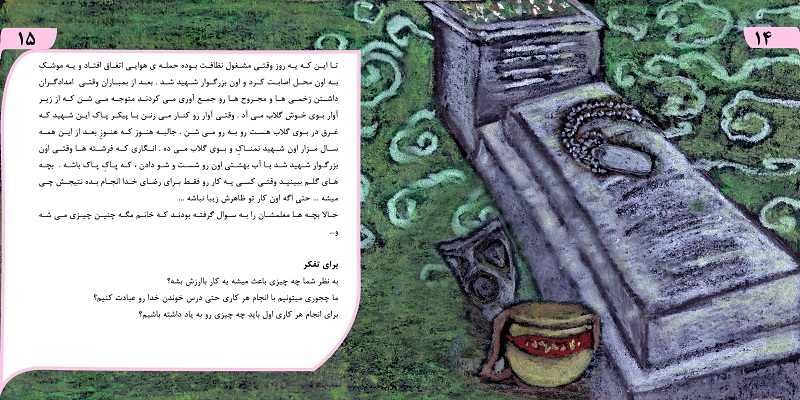 ۱۴
۱۵
تا این که یه روز وقتی مشغول نظافت بوده حمله ی هوایی اتفاق افتاد و یه موشک
به اون محل اصابت کرد و اون بزرگوار شهید شد . بعد از بمباران وقتی امدادگران
داشتن زخمی ها و مجروح ها رو جمع آوری می کردند متوجه می شن که از زیر
آوار بوی خوش گلاب می آد . وقتی آوار رو کنار می زنن با پیکر پاک این شهید که
غرق در بوی گلاب هست رو به رو می شن . جالبه هنوز که هنوز بعد از این همه
سال مزار اون شهید نمناک و بوی گلاب می ده . انگاری که فرشته ها وقتی اون
بزرگوار شهید شد با آب بهشتی اون رو شست و شو دادن ، که پاکِ پاک باشه . بچه
های گلم ببینید وقتی کسی یه کار رو فقط برای رضای خدا انجام بده نتیجش چی
میشه ... حتی اگه اون کار تو ظاهرش زیبا نباشه ...
حالا بچه ها معلمشان را به سوال گرفته بودند که خانم مگه چنین چیزی می شه
و...
برای تفکر
به نظر شما چه چیزی باعث میشه یه کار باارزش بشه؟
ما چجوری میتونیم با انجام هر کاری حتی درس خوندن خدا رو عبادت کنیم؟
برای انجام هر کاری اول باید چه چیزی رو به یاد داشته باشیم؟